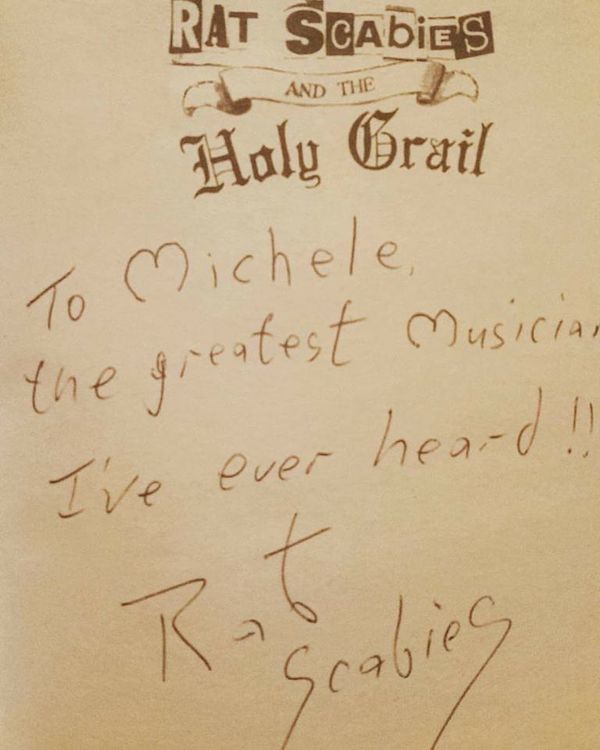 RAT SCABiES
AND THE
Holy Grail
To Michele,
the greatest Musician
I've ever heard!!
Rat
Scabies